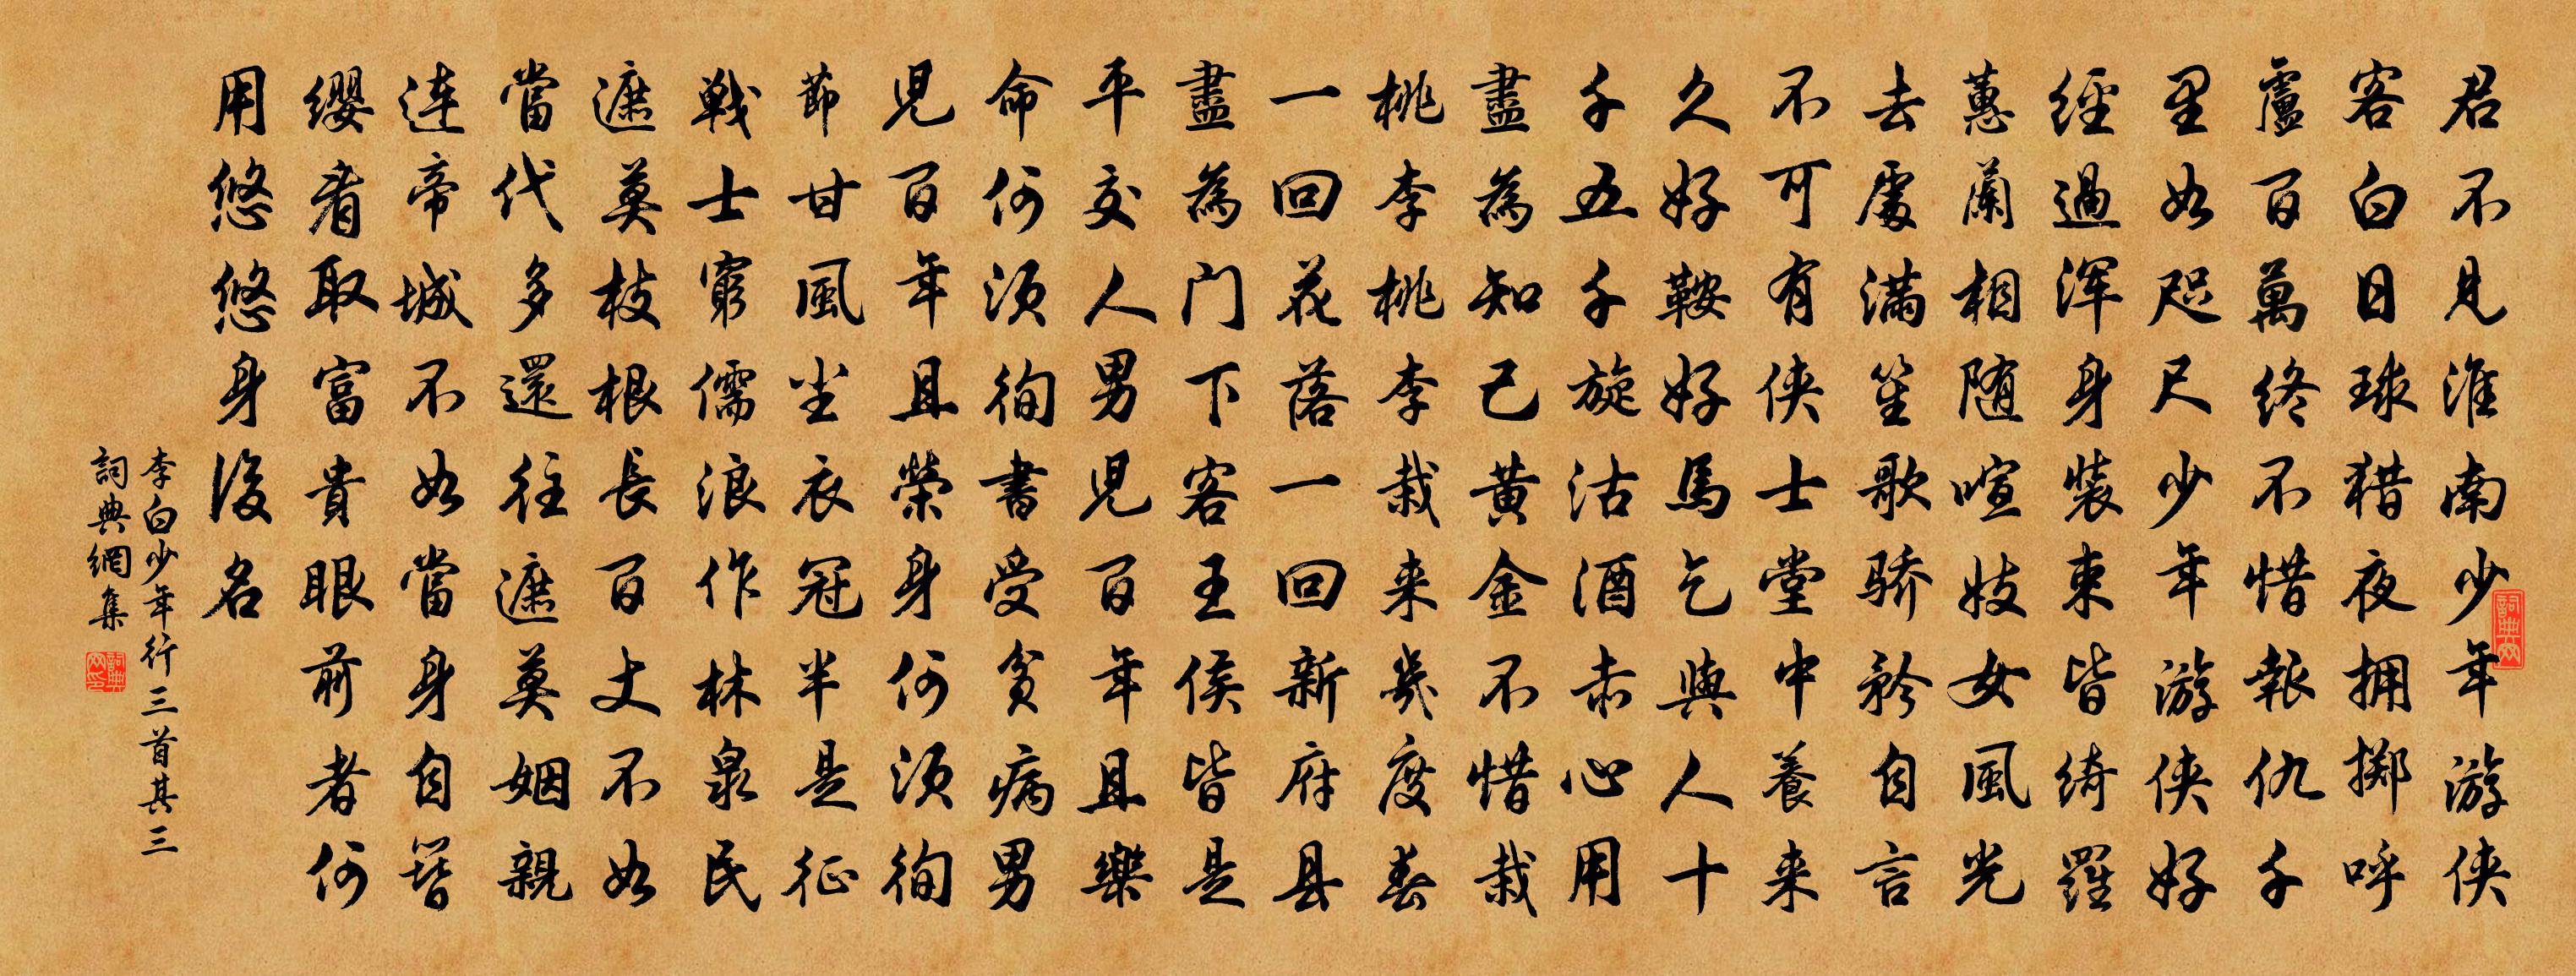 君不見淮南少年游侠
客白日球猎夜拥掷呼
盧百萬终不惜報仇千
里如咫尺少年游侠好
經過浑身裝束皆綺羅
蕙蘭相随喧妓女風光
去處满笙歌骄矜自言
不可有侠士堂中養来
久好鞍好馬乞與人十
千五千旋沽酒赤心用
盡為知己黄金不惜栽
桃李桃李栽来幾度春
一回花落一回新府县
盡為门下客王侯皆是
平交人男児百年且樂
命何須徇書受貧病男
児百年且榮身何須徇
節甘風尘衣冠半是征
戰士窮儒浪作林泉民
遮莫枝根長百丈不如
當代多還往遮莫姻親
連帝城不如當身自簪
缨看取富貴眼前者何
用悠悠身後名
李白少年行三首其三
詞典網集
詞典网
詞典网印